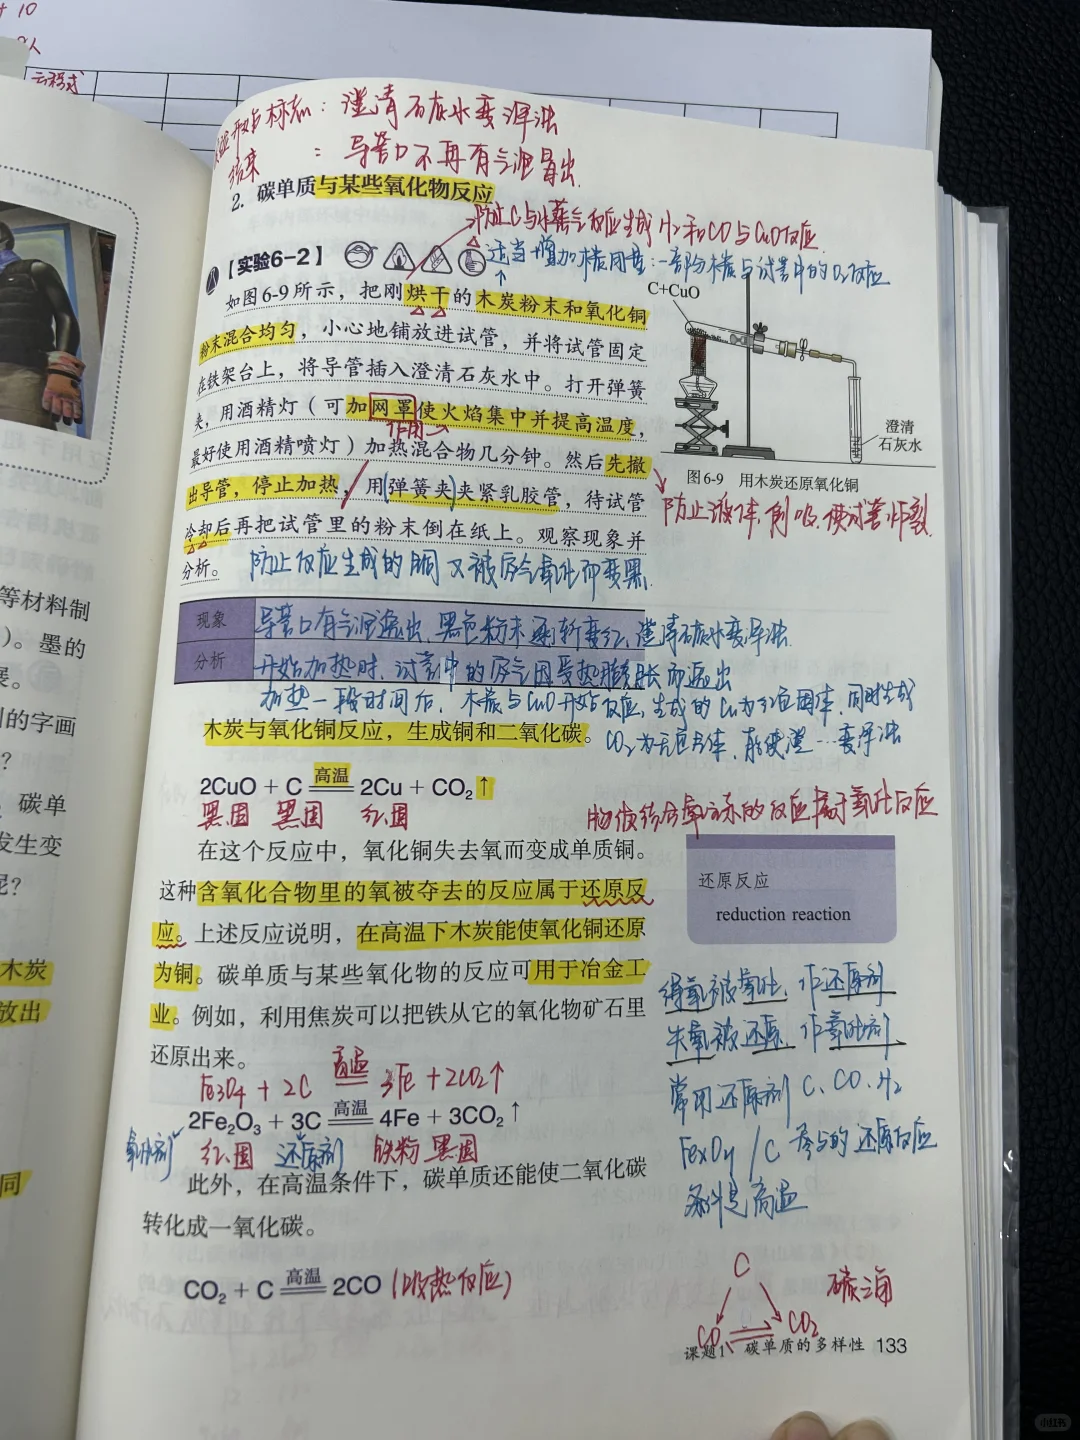 + 10
人
方程式
开始标志：澄清石灰水变浑浊
结束 ：导管口不再有气泡冒出
2. 碳单质与某些氧化物反应
防止C与水蒸气反应生成H₂和CO与CuO反应
【实验6-2】
适当增加木炭用量：一部分木炭与试管中的O₂反应
如图6-9所示，把刚烘干的木炭粉末和氧化铜
粉末混合均匀，小心地铺放进试管，并将试管固定
在铁架台上，将导管插入澄清石灰水中。打开弹簧
夹，用酒精灯（可加网罩使火焰集中并提高温度，
作用
最好使用酒精喷灯）加热混合物几分钟。然后先撤
出导管，停止加热，用弹簧夹夹紧乳胶管，待试管
冷却后再把试管里的粉末倒在纸上。观察现象并
分析。
防止反应生成的铜又被氧气氧化而变黑
C+CuO
澄清
石灰水
图6-9 用木炭还原氧化铜
防止液体倒吸，使试管炸裂
现象
导管口有气泡逸出，黑色粉末逐渐变红，澄清石灰水变浑浊
分析
开始加热时，试管中的空气因受热膨胀而逸出
加热一段时间后，木炭与CuO开始反应，生成的Cu为红色固体，同时生成
CO₂为无色气体，能使澄…变浑浊
木炭与氧化铜反应，生成铜和二氧化碳。
2CuO + C 高温 2Cu + CO₂↑
黑固 黑固 红固
物质结合氧元素的反应属于氧化反应
在这个反应中，氧化铜失去氧而变成单质铜。
这种含氧化合物里的氧被夺去的反应属于还原反
应。上述反应说明，在高温下木炭能使氧化铜还原
为铜。碳单质与某些氧化物的反应可用于冶金工
业。例如，利用焦炭可以把铁从它的氧化物矿石里
还原出来。
还原反应
reduction reaction
得氧被氧化，作还原剂
失氧被还原，作氧化剂
常用还原剂 C、CO、H₂
FexOy / C 参与的还原反应
条件是高温
Fe₃O₄ + 2C 高温 3Fe + 2CO₂↑
2Fe₂O₃ + 3C 高温 4Fe + 3CO₂↑
氧化剂 红固 还原剂 铁粉黑固
此外，在高温条件下，碳单质还能使二氧化碳
转化成一氧化碳。
CO₂ + C 高温 2CO（吸热反应）
C
碳三角
CO CO₂
课题1 碳单质的多样性 133
等材料制
）。墨的
展。
的字画
？
碳单
发生变
呢？
木炭
放出
同
小红书